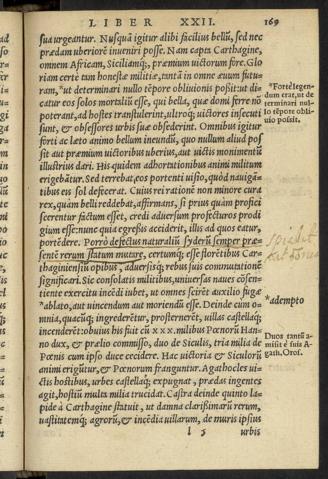 LIBER XXII. 169
sua urgeantur. Nusquã igitur alibi facilius bellũ, sed nec
prædam uberiorẽ inueniri posse. Nam capta Carthagine,
omnem Africam, Siciliamq; præmium uictorum fore. Glo
riam certè tam honestæ militiæ, tantã in omne æuum futu-
ram, ut determinari nullo tẽpore obliuionis possit: ut di-
catur eos solos mortaliũ esse, qui bella, quæ domi ferre nõ
poterant, ad hostes transtulerint, ultroq; uictores insecuti
sunt, & obsessores urbis suæ obsederint. Omnibus igitur
forti ac læto animo bellum ineundũ, quo nullum aliud pos
sit aut præmium uictoribus uberius, aut uictis monimentũ
illustrius dari. His quidem adhortationibus animi militum
erigebãtur. Sed terrebat eos portenti uisio, quòd nauigã-
tibus eis sol defecerat. Cuius rei rationẽ non minore cura
rex, quàm belli reddebat, affirmans, si prius quàm profici
scerentur factum esset, credi aduersum profecturos prodi
gium esse: nunc quia egressis acciderit, illis ad quos eatur,
portẽdere. Porrò defectus naturaliũ syderũ semper præ-
sentẽ rerum statum mutare, certumq; esse florẽtibus Car-
thaginiensiũ opibus, aduersisq; rebus suis commutationẽ
significari. Sic consolatis militibus, uniuersas naues cõsen-
tiente exercitu incẽdi iubet, ut omnes scirẽt auxilio fugæ
*ablato, aut uincendum aut moriendũ esse. Deinde cum o-
mnia, quacũq; ingrederẽtur, prosternerẽt, uillas castellaq;
incenderẽt: obuius his fuit cũ xxx. milibus Pœnorũ Han-
no dux, & prælio commisso, duo de Siculis, tria milia de
Pœnis cum ipso duce cecidere. Hac uictoria & Siculorũ
animi erigũtur, & Pœnorum franguntur. Agathocles ui-
ctis hostibus, urbes castellaq; expugnat, prædas ingentes
agit, hostiũ multa milia trucidat. Castra deinde quinto la-
pide à Carthagine statuit, ut damna clarissimarũ rerum,
uastitatemq; agrorũ, & incẽdia uillarum, de muris ipsius
l 5 urbis
*Fortè legen-
dum erat, ut de
terminari nul-
lo tẽpore obli-
uio possit.
*adempto
Duos tantũ a-
misit è suis A-
gath. Oros.